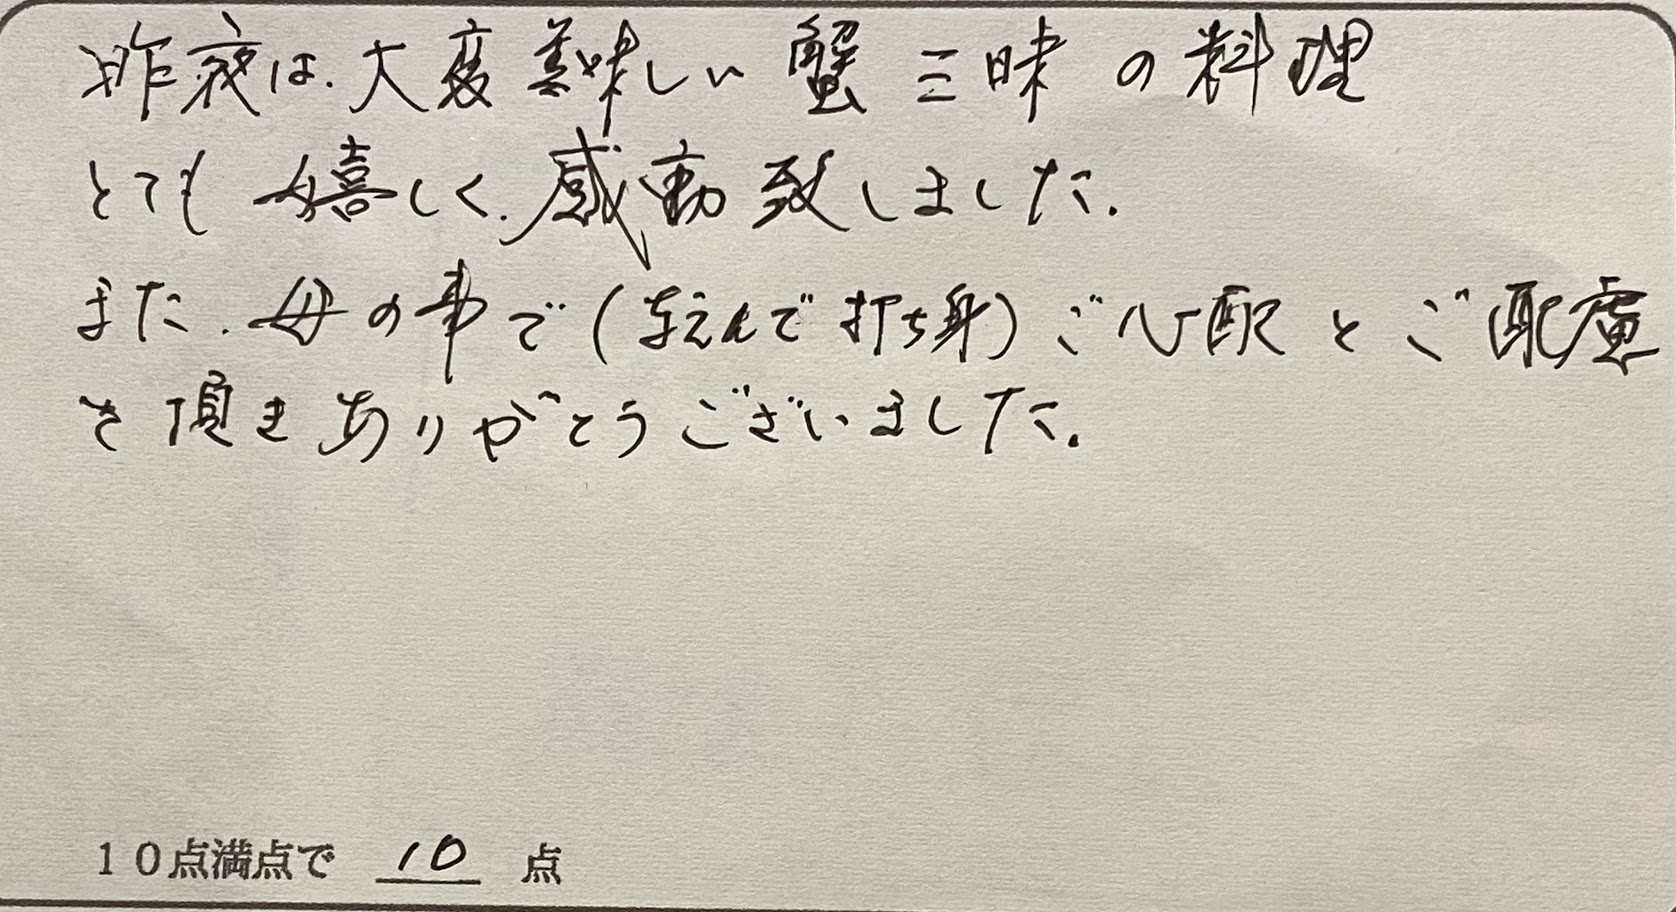 昨夜は、大変美味しい蟹三昧の料理
とても嬉しく、感動致しました。
また、母の事で(転んで打ち身)ご心配とご配慮
を頂きありがとうございました。
10点満点で 10 点